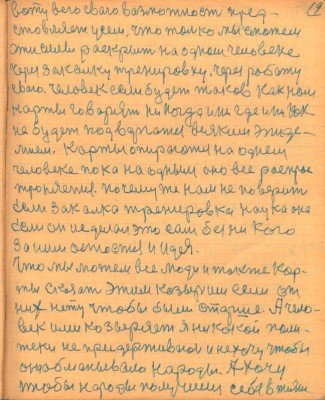 19
вот у него своего возможност пред-
ставляет усем, что только мы сможем
эти силы раскрыть на одном человеке
через закалку тренировку, через работу
свою. Человек сам будет таков как нам
карты говорят ни когда и ни где и ни как
не будет подвергаться всяким эпиде-
миям. Карты опираются на одном
человеке пока на одным оно все распро
троняется. почему же нам не поверить
если закалка тренировка наука она
если он не делал это сам без ни кого
за ним остается и идея.
Что мы можем все люди и также кар-
ты сказать этим козырним если от
них нету чтобы были старше. А чело-
век ими козыряет я ни какой поли-
теки не придерживаюсь и не хочу чтобы
она обманывало народы. А хочу
чтобы народы получили себя в жизни